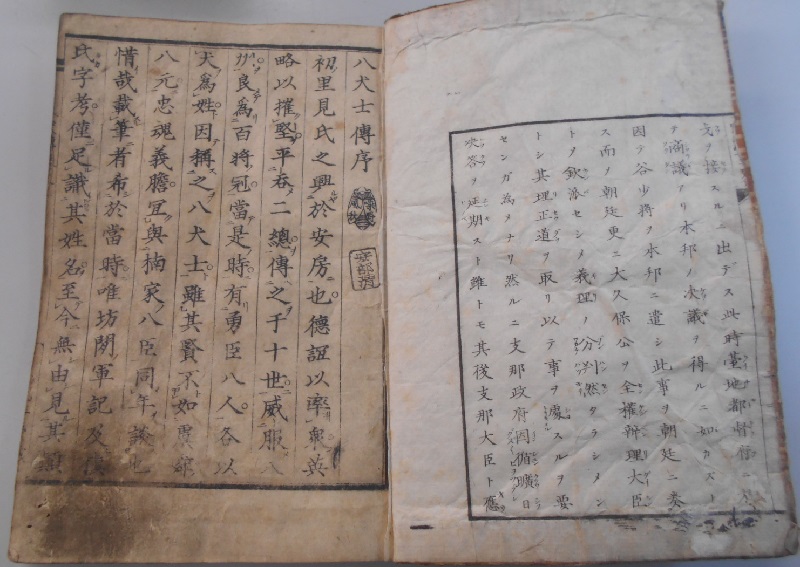 氣ヲ接スルニ出デス此時臺地都督
ヲ商議アリ本邦ノ決議ヲ得ルニ如カスト
因テ谷少将ヲ本邦ニ遣シ此事ヲ朝廷ニ委
ス而ノ朝廷更ニ大久保公ヲ全權辨理大臣
トノ欽派セシメ義理ノ分判然タラシメン
トシ其理正道ヲ取リ以テ事ヲ處スルヲ要
センガ為メナリ然ルニ支那政府因循曠日
決答ヲ延期スト雖トモ其後支那大臣ト應
八犬士傳序
初里見氏之興於安房也德誼以率衆英
略以摧堅平呑二總傳之于十世威服八
州良為百將冠當是時有勇臣八人各以
犬為姓因稱之八犬士雖其賢不如虞舜
八元忠魂義膽宜與楠家八臣同年談也
惜哉載筆者希於當時唯坊間軍記及
氏字考僅足識其姓名至今無由見其